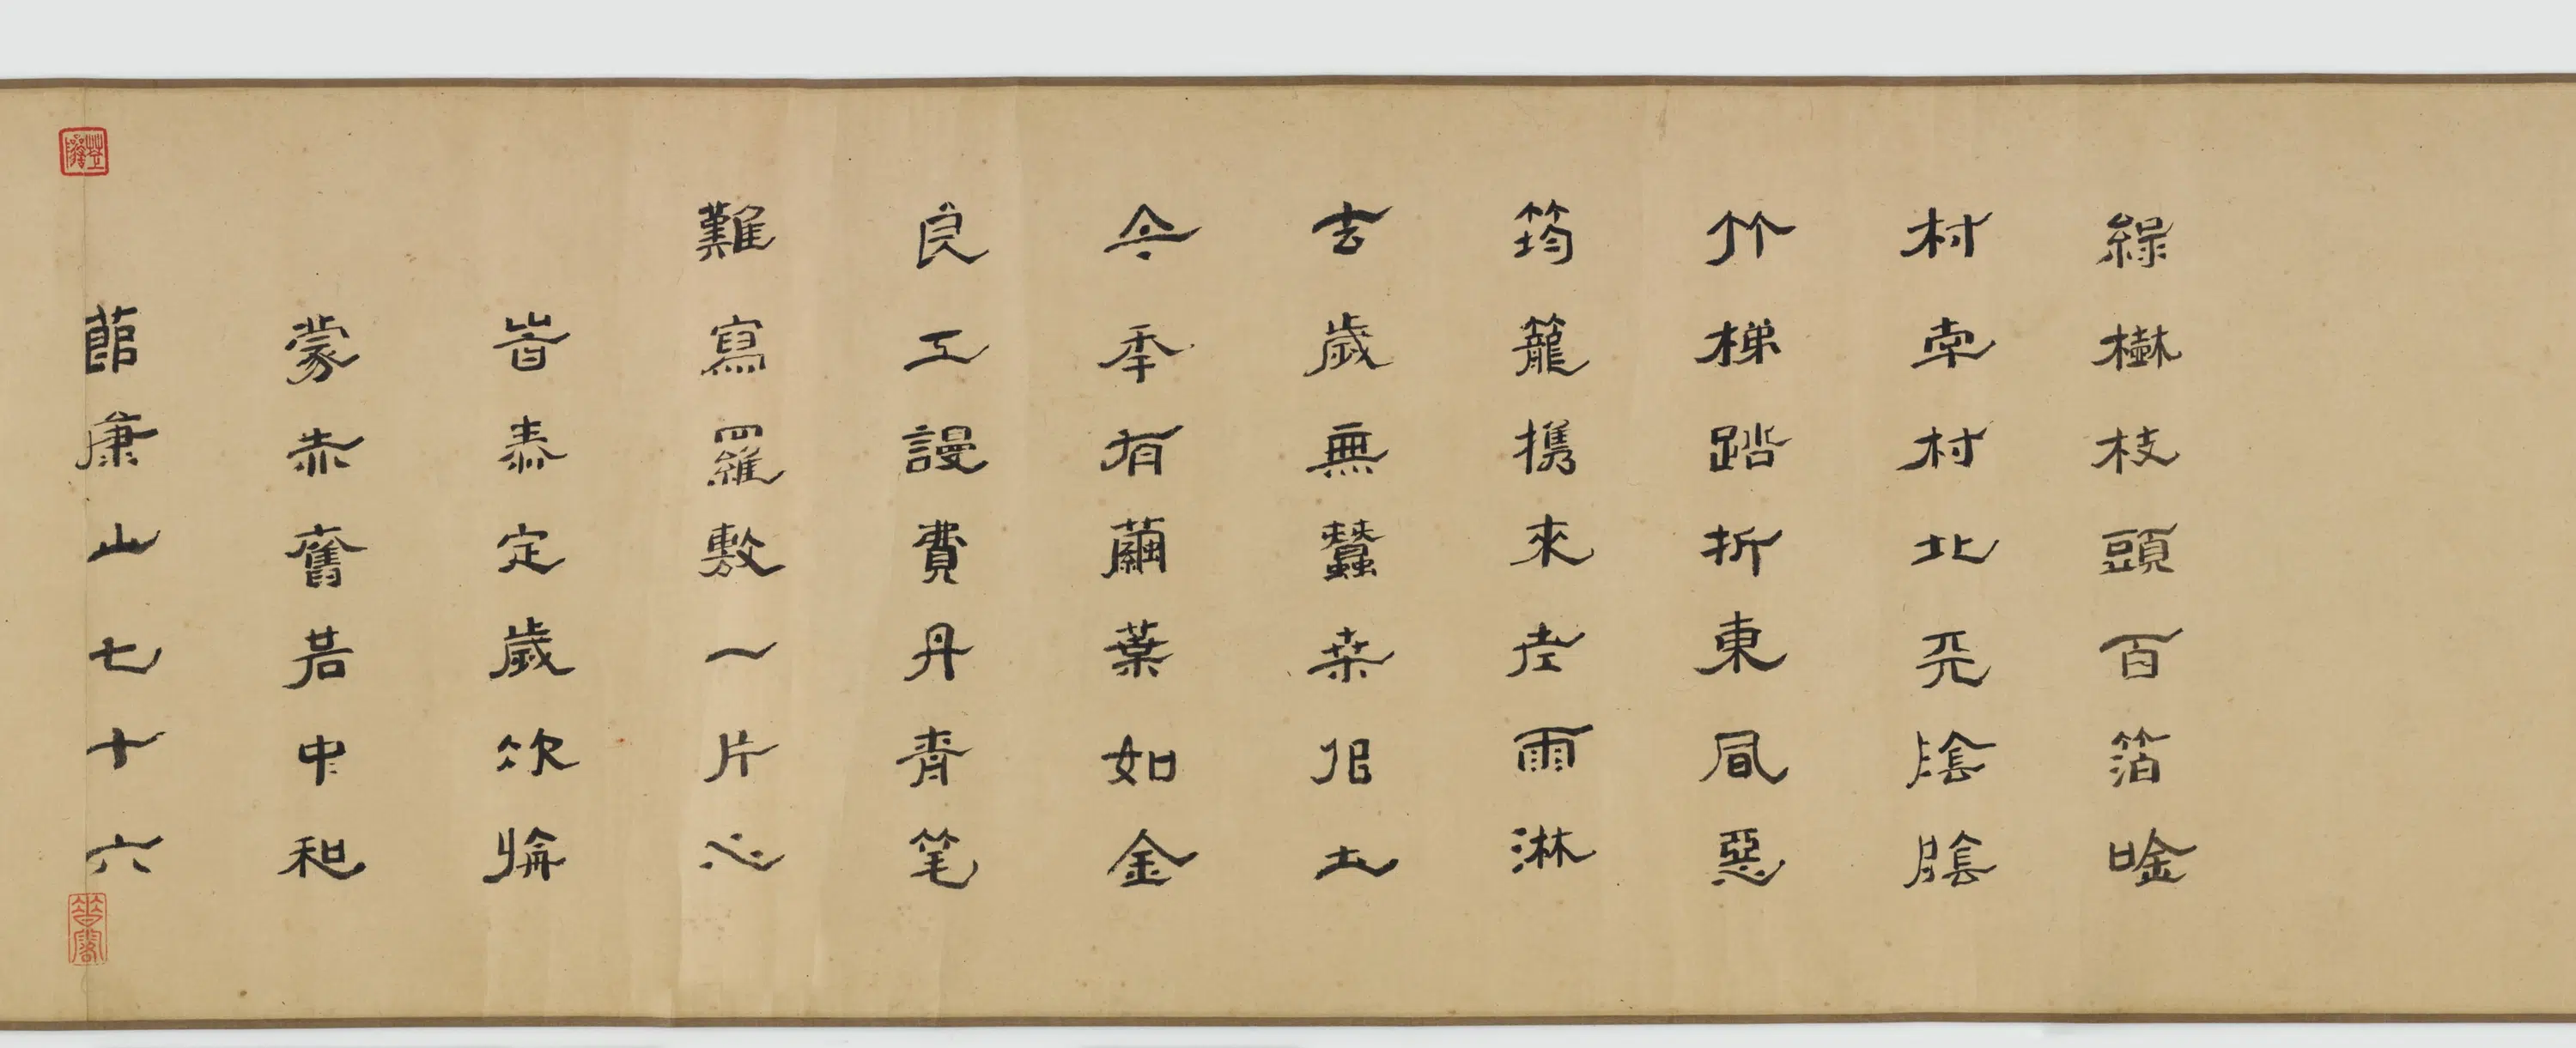 綠樹枝頭百箔唫
村南村北天陰陰
竹梯踏折東風惡
筠籠携來雨淋
去歲無蠶桑佀土
今季有繭葉如金
良工謾費丹青笔
難寫羅敷一片心
旹泰定歲次旃
蒙赤奮若中和
節康山七十六